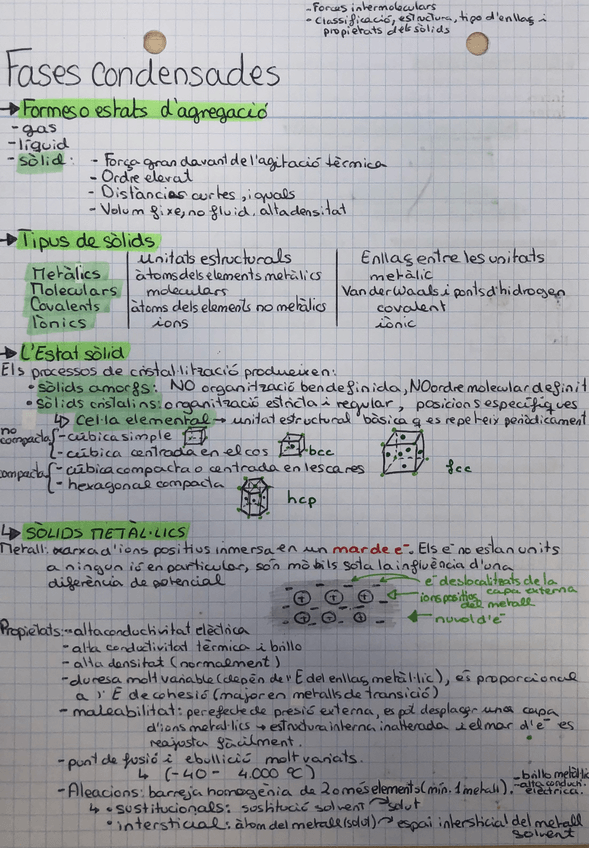 - Forces intermoleculars
- Classificació, estructura, tipo d'enllaç i
propietats dels sòlids
Fases condensades
→ Formes o estats d'agregació
- gas
- líquid
- sòlid: - Força gran davant de l'agitació tèrmica
- Ordre elevat
- Distàncias curtes, iguals
- Volum fixe, no fluid, alta densitat
→ Tipus de sòlids
unitats estructurals Enllaç entre les unitats
Metàlics àtoms dels elements metàlics metàlic
Moleculars moleculars Van der Waals i ponts d'hidrogen
Covalents àtoms dels elements no metàlics covalent
Iònics ions iònic
→ L'Estat sòlid
Els processos de cristal·lització produeixen:
• sòlids amorfs: NO organització ben definida, NO ordre molecular definit
• Sòlids cristalins: organització estricta i regular, posicions específiques
↳ Cel·la elemental → unitat estructural bàsica q es repeteix periòdicament
no compacta - cúbica simple
- cúbica centrada en el cos bcc
compacta - cúbica compacta o centrada en les cares fcc
- hexagonal compacta hcp
↳ SÒLIDS METÀL·LICS
Metall: xarxa d'ions positius inmersa en un mar de e⁻. Els e⁻ no estan units
a ningun ió en particular, són mòbils sota la influència d'una
diferència de potencial
e⁻ deslocalitzats de la
capa externa
del metall
ions positius
nuvol d'e⁻
Propietats: - alta conductivitat elèctrica
- alta conductivitat tèrmica i brillo
- alta densitat (normalment)
- duresa molt variable (depèn de l'E del enllaç metàl·lic), és proporcional
a l'E de cohesió (major en metalls de transició)
- maleabilitat: per efecte de presió externa, es pot desplaçar una capa
d'ions metal·lics → estructura interna inalterada i el mar d'e⁻ es
reajusta fàcilment.
- punt de fusió i ebullició molt variats.
↳ (-40 - 4.000 ºC)
- Aleacions: barreja homogènia de 2 o més elements (mín. 1 metall).
- brillo metàlic
- alta conduct.
elèctrica.
↳ • sustitucionals: sostitució solvent solut
• intersticial: àtom del metall (solut) espai intersticial del metall
solvent